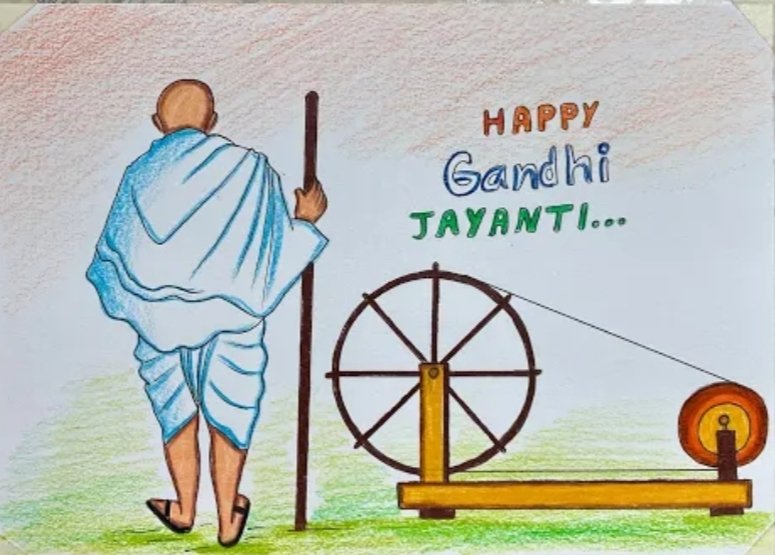 HAPPY
Gandhi
JAYANTI...